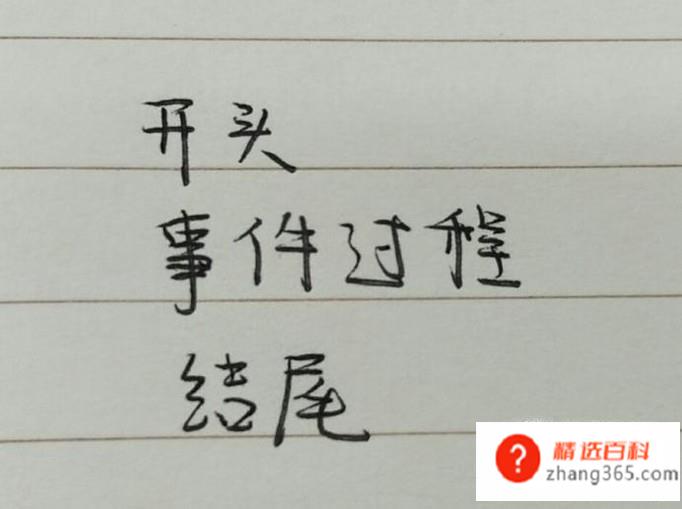 开头
事件过程
结尾
精选百科
zhang365.com